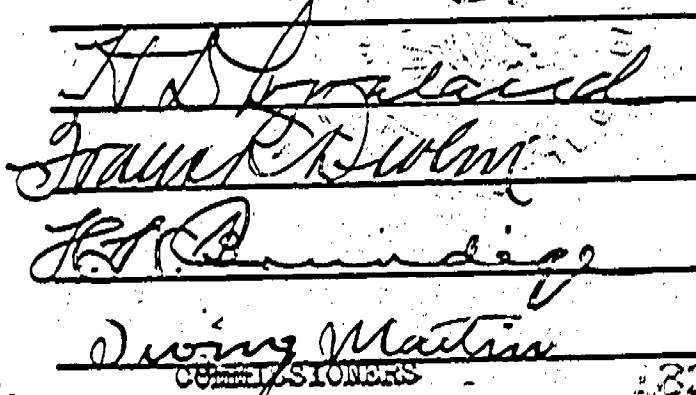 H D Loveland
Frank R Devlin
H. W. Brundige
Irving Martin
COMMISSIONERS
182